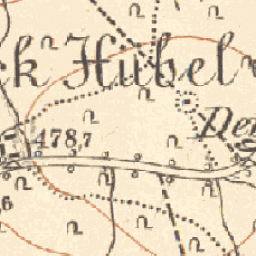 ck Hubel
Den
478,7
6